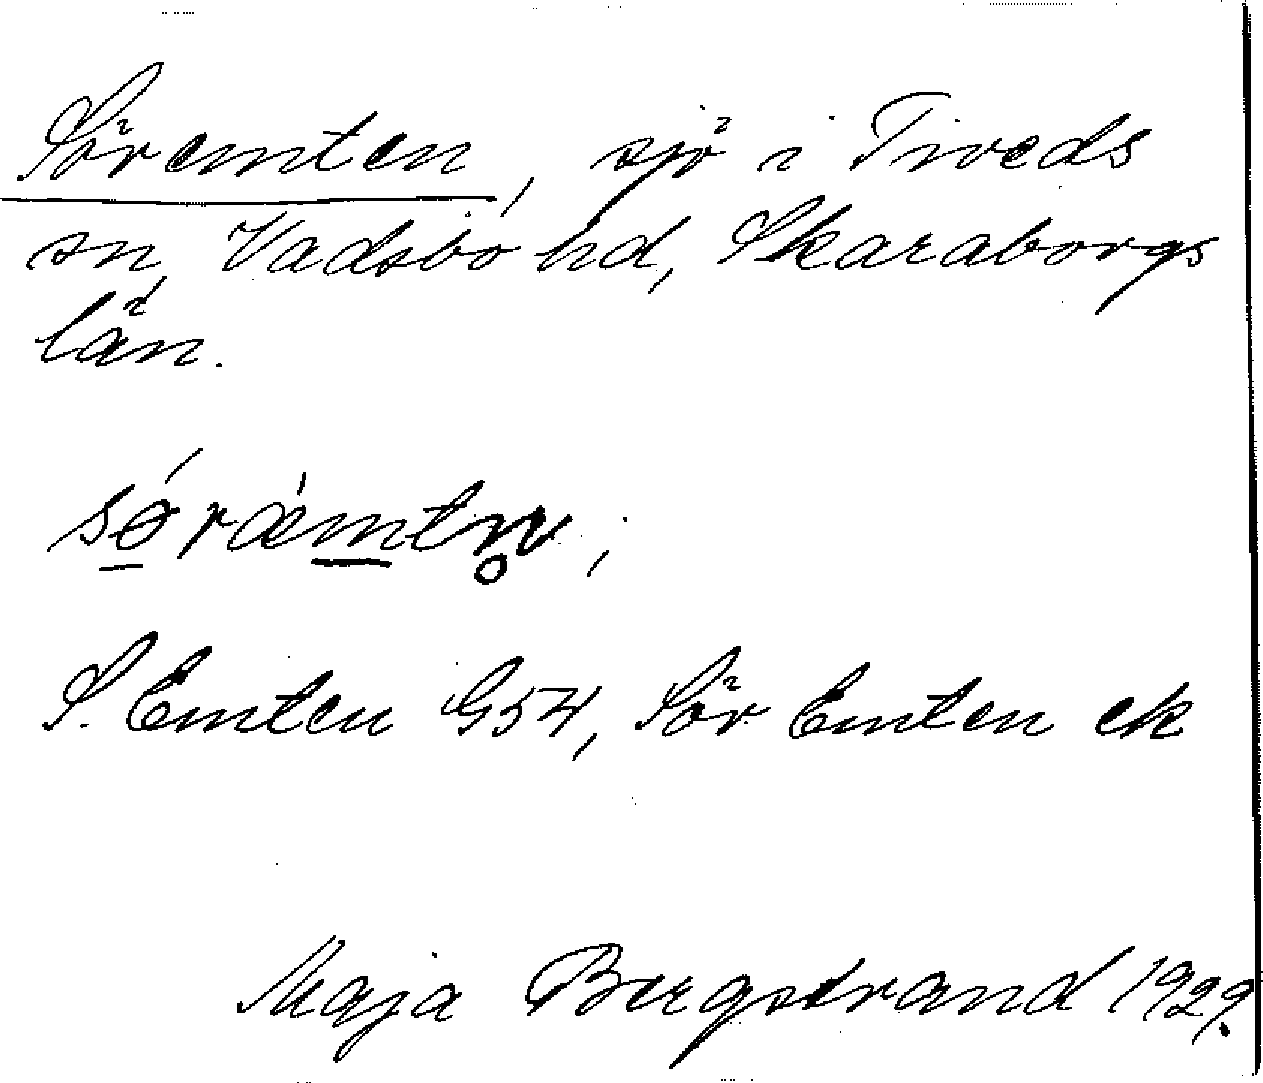 Söremten, sjö i Tiveds
sn, Vadsbo hd, Skaraborgs
län.
sǿrǽmtn̥ ;
S. Emten G54, Sör Emten ek
Maja Bergstrand 1929.